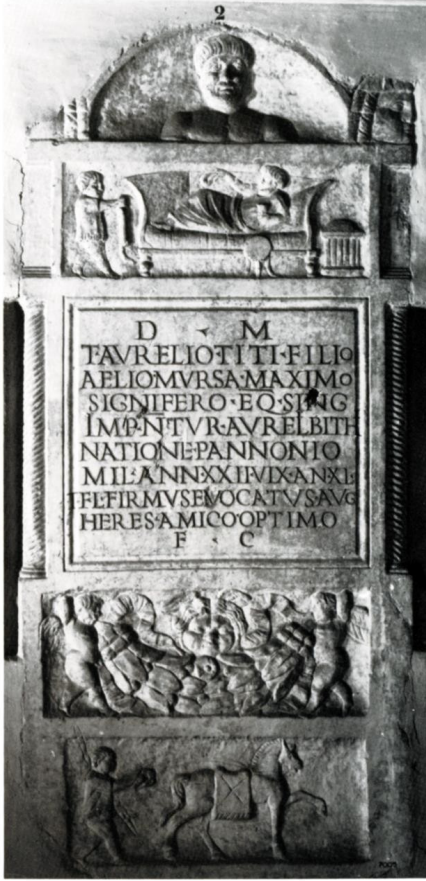 2
D · M
T·AVRELIO·TITI·FILIO
AELIO·MVRSA·MAXIMO
SIGNIFERO·EQ·SING
IMP·N·TVR·AVREL·BITH
NATIONE·PANNONIO
MIL·ANN·XXII·VIX·AN·XL
T·FL·FIRMVS·EVOCATVS·AVG
HERES·AMICO·OPTIMO
F · C